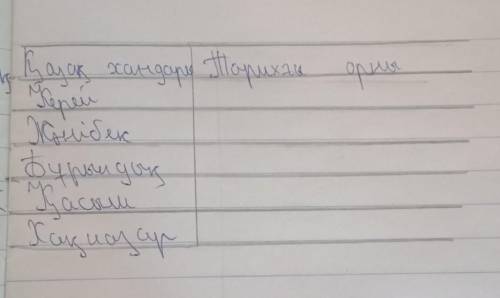 Қазақ хандары Тарихғы орны
Керей
Жәнібек
Бұрындық
Қасым
Хақназар